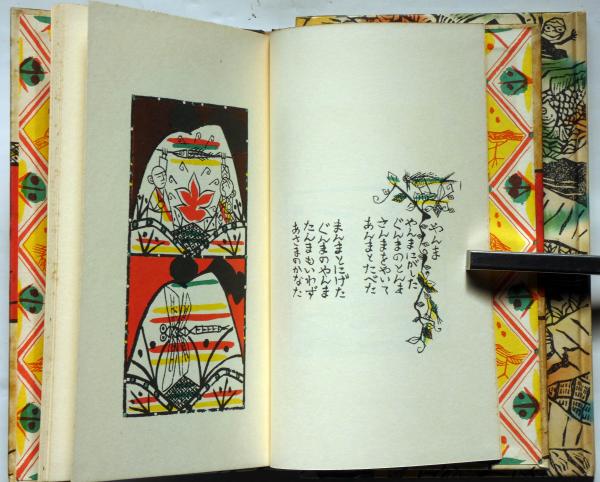 やんま
やんまにがした
ぐんまのとんま
さんまをやいて
あんまとたべた
まんまとにげた
ぐんまのやんま
たんまもいわず
あさまのかなた